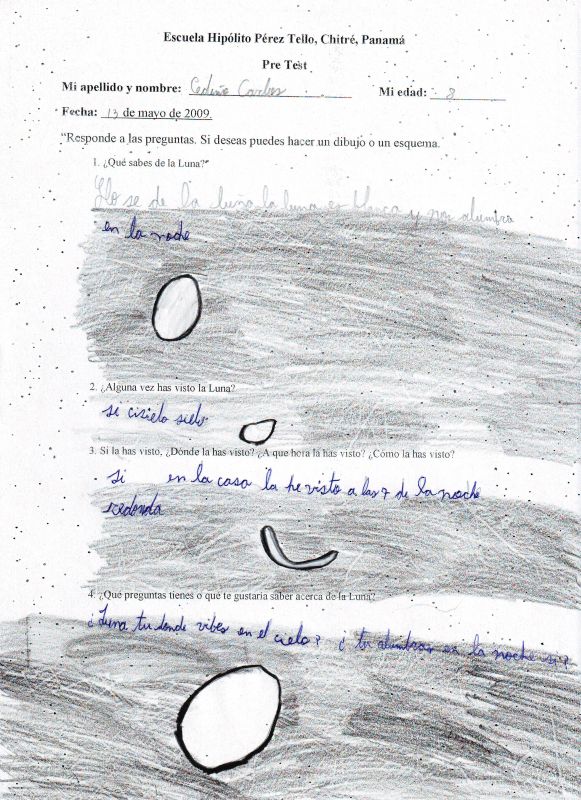 Escuela Hipólito Pérez Tello, Chitré, Panamá
Pre Test
Mi apellido y nombre: Cedeño Carlos Mi edad: 8
Fecha: 13 de mayo de 2009
"Responde a las preguntas. Si deseas puedes hacer un dibujo o un esquema.
1. ¿Qué sabes de la Luna?"
Llo se de la luna la luna es blanca y nos alumbra
en la noche
2. ¿Alguna vez has visto la Luna?
si cisielo sielo
3. Si la has visto, ¿Dónde la has visto? ¿A que hora la has visto? ¿Cómo la has visto?
si en la casa la he visto a las 7 de la noche
redonda
4. ¿Qué preguntas tienes o que te gustaría saber acerca de la Luna?
¿Luna tu donde vibes en el cielo? ¿tu alumbras en la noche si?